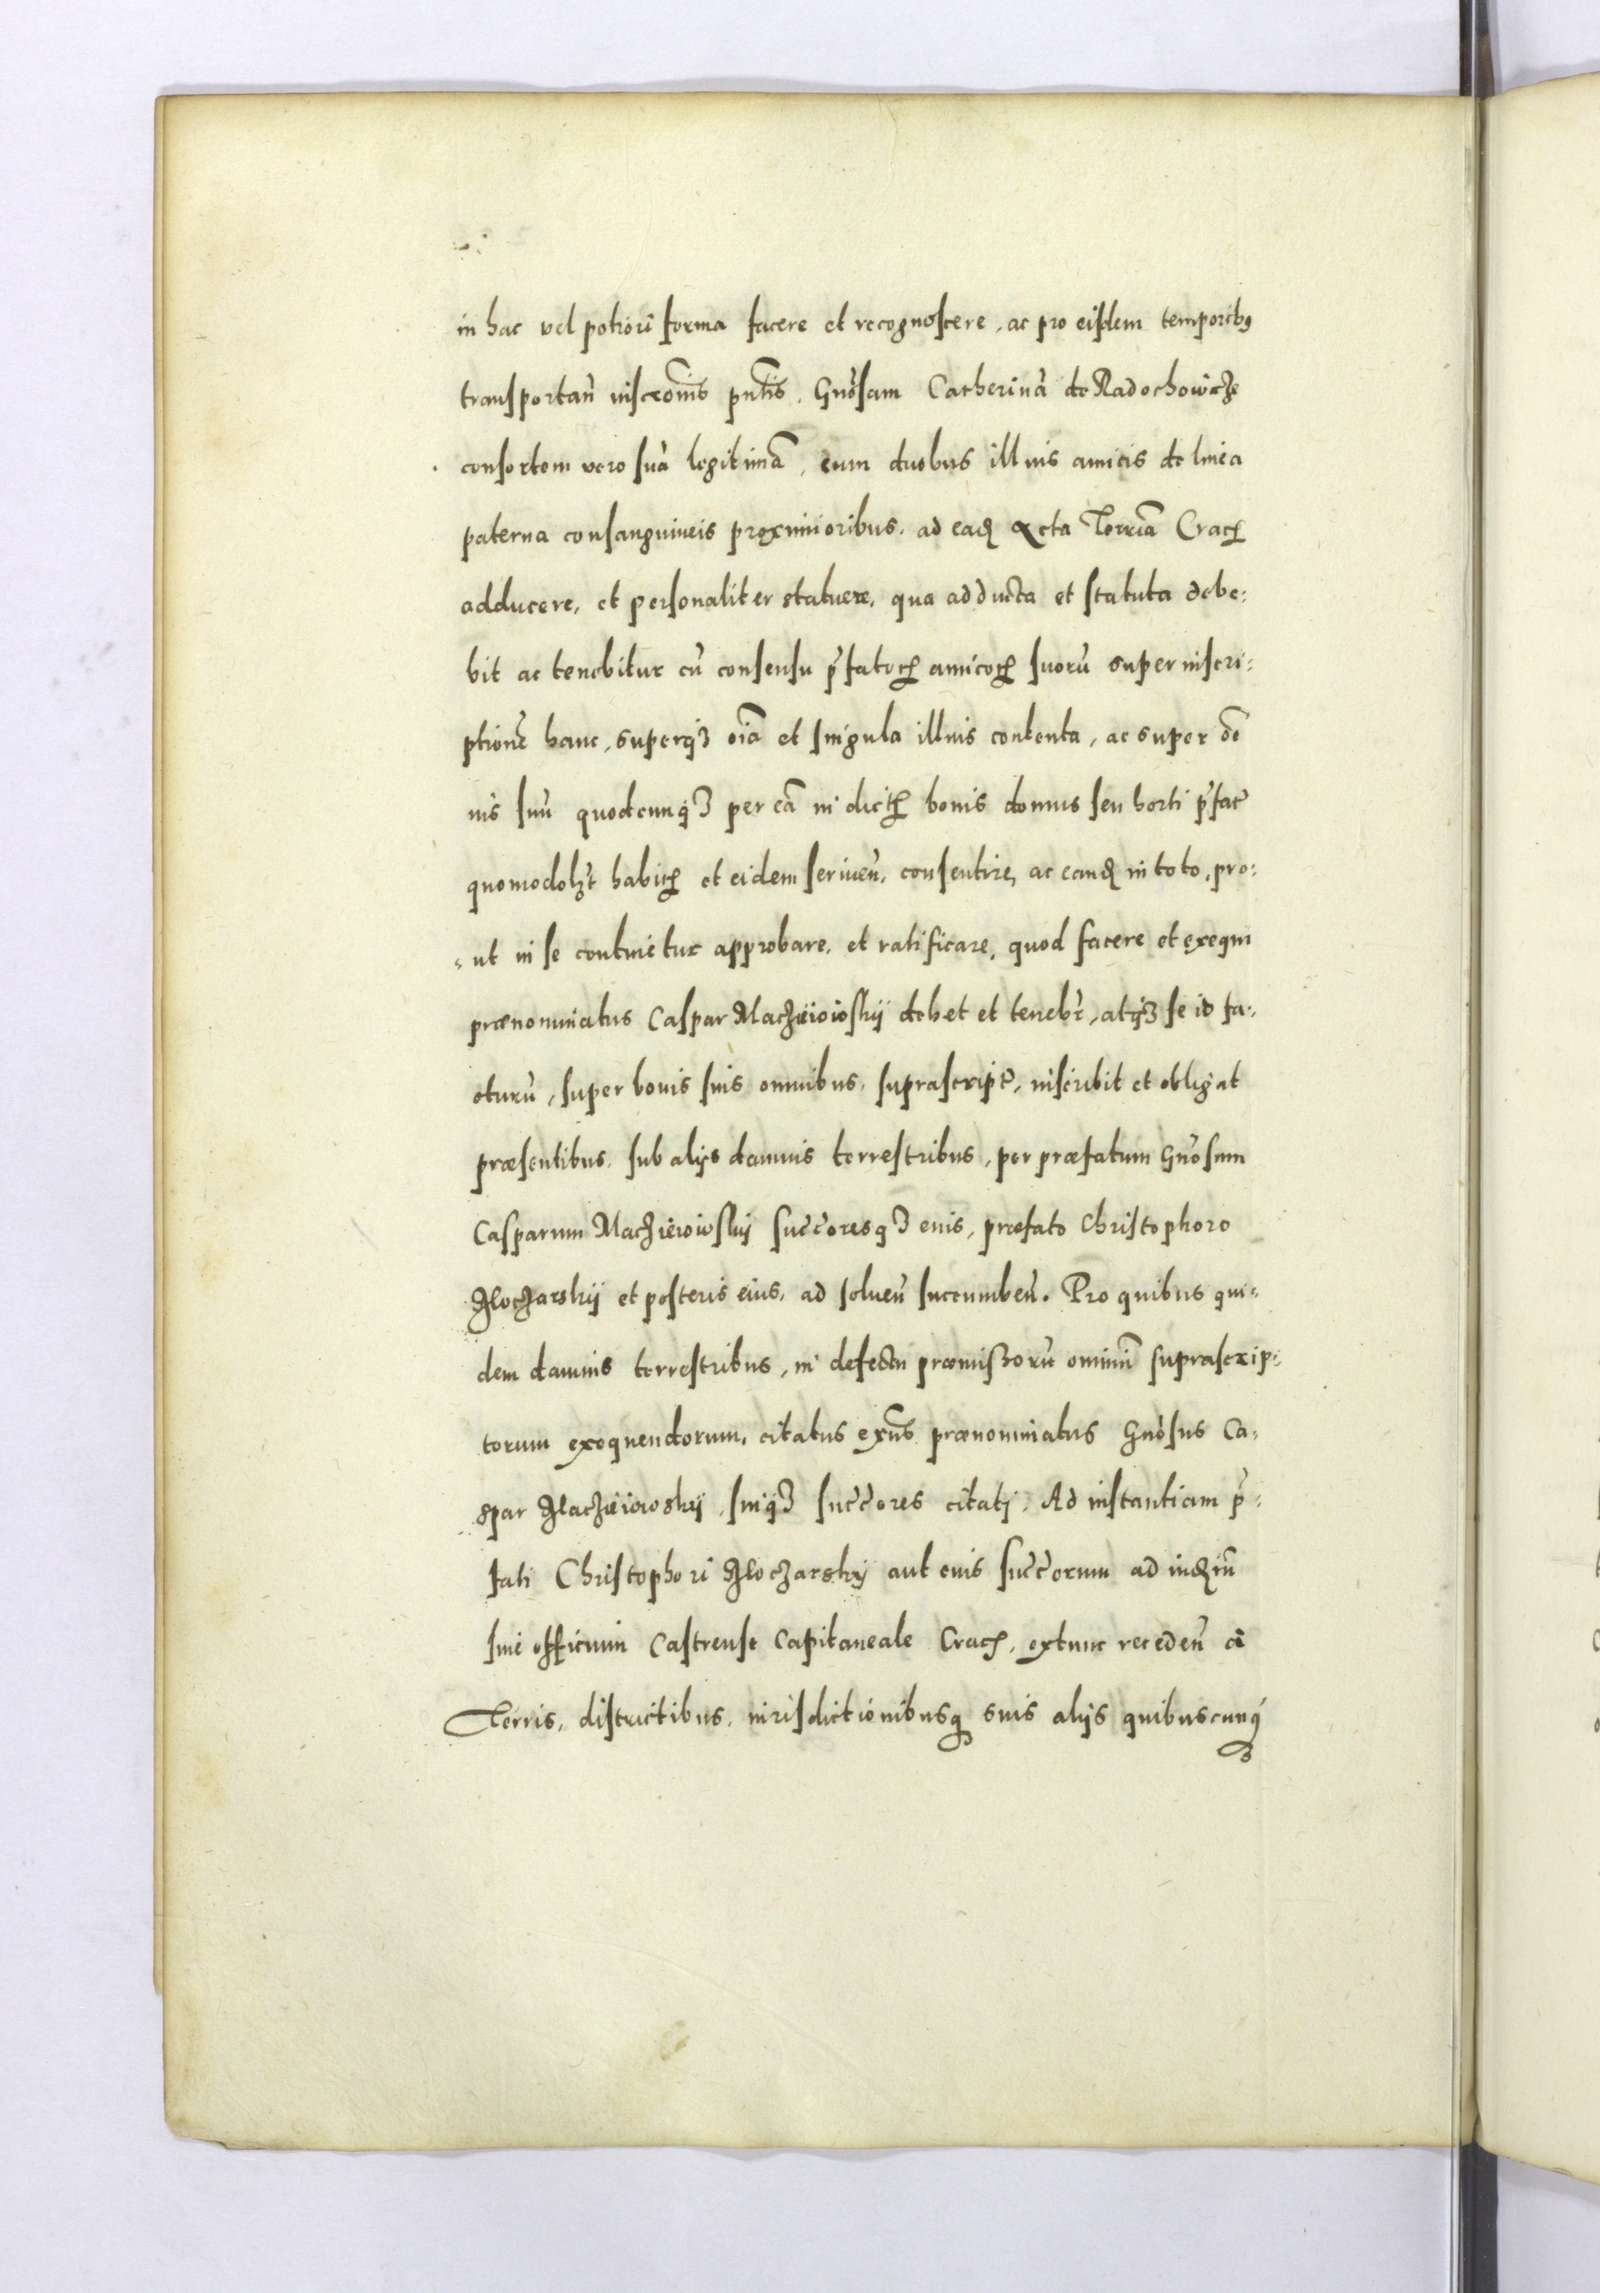 in hac vel potiori forma facere et recognoscere, ac pro eisdem temporibꝰ
transportan̄ inscrōnis pn̄tis. Gnōsam Catherinā de Radochowcze
consortem vero suā legitimā, cum duobus illius amicis de linea
paterna consanguineis proximioribus, ad eadꝫ Acta Terrā Cracꝫ
adducere, et personaliter statuere, qua adducta et statuta debe-
bit ac tenebitur cū consensu p̄fatoꝝ amicoꝝ suorū super inscri-
ptionē hanc, superqꝫ oīa et singula illius contenta, ac super oē
ius suū quodcunqꝫ per eā in dictꝫ bonis domus seu horti p̄fatꝫ
quomodolꝫt habitꝫ et eidem serivēn, consentire, ac eandꝫ in toto, pro-
ut in se continetur approbare, et ratificare, quod facere et exequi
prænominatus Caspar Maczieiowskÿ debet et tenebr̄, atqꝫ se id fa-
cturū, super bonis suis omnibus, suprascriptꝫ, inscribit et obligat
præsentibus, sub alÿs damnis terrestribus, per præfatum Gnōsum
Casparum Maczieiowskÿ succōresqꝫ eius, præfato Christophoro
Moczarskÿ et posteris eius, ad soluen̄ succumben̄. Pro quibus qui-
dem damnis terrestribus, in defectu præmissorū omniū suprascrip-
torum exequendorum, citatus exn̄s prænominatus Gnōsus Ca-
spar Maczieiowskÿ, suiqꝫ succōres citati, Ad instantiam p̄-
fati Christophori Moczarskÿ aut eius succōrum ad iudꝫiū
sive officium Castrense Capitaneale Cracꝫ, extunc receden̄ a
Terris, districtibus, iurisdictionibusqꝫ suis alÿs quibuscunqꝫ